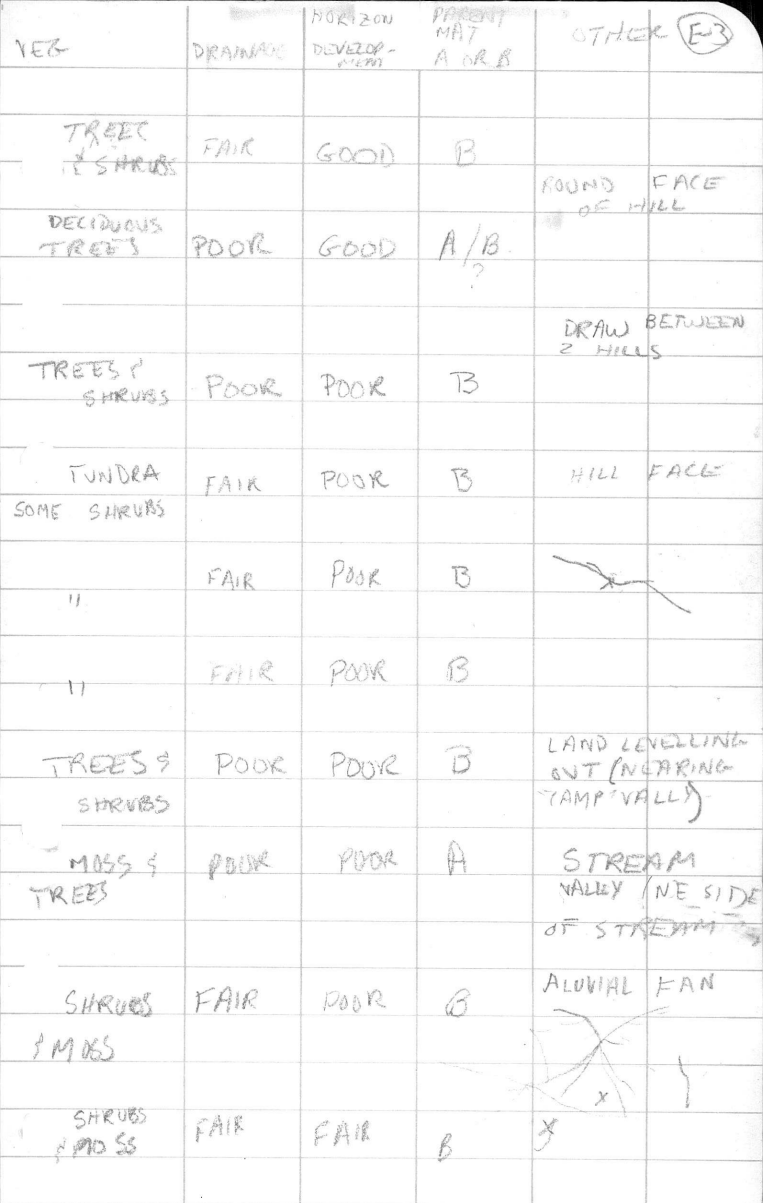 VEG DRAINAGE HORIZON DEVELOP-MENT PARENT MAT A OR B OTHER E-3
TREES & SHRUBS FAIR GOOD B
ROUND FACE OF HILL
DECIDUOUS TREES POOR GOOD A/B ?
DRAW BETWEEN 2 HILLS
TREES & SHRUBS POOR POOR B
TUNDRA FAIR POOR B HILL FACE
SOME SHRUBS
" FAIR POOR B
" FAIR POOR B
TREES & SHRUBS POOR POOR B LAND LEVELLING OUT (NEARING "AMP" VALLY)
MOSS & TREES POOR POOR A STREAM VALLEY (NE SIDE OF STREAM
SHRUBS & MOSS FAIR POOR B ALUVIAL FAN
X
SHRUBS & MOSS FAIR FAIR B X